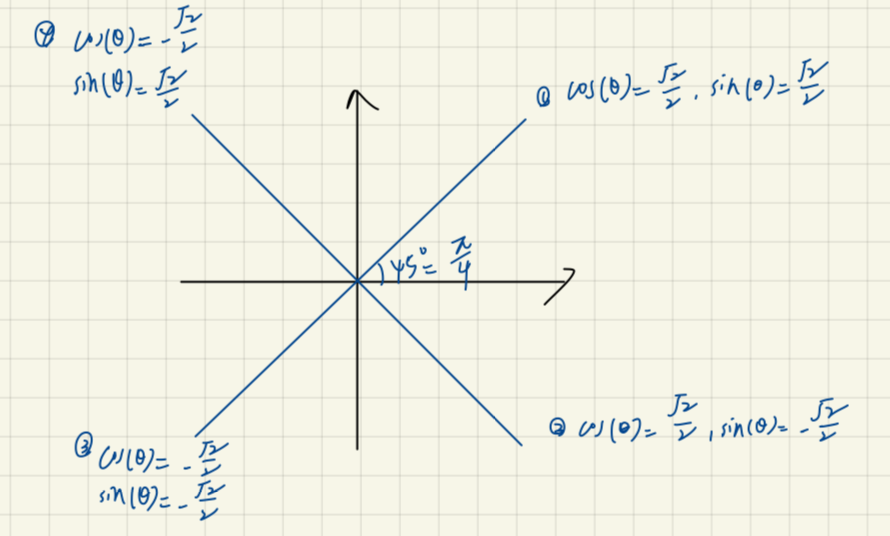 ④ cos(θ)=-√2/2
sin(θ)=√2/2
① cos(θ)=√2/2, sin(θ)=√2/2
45°=π/4
② cos(θ)=√2/2, sin(θ)=-√2/2
③ cos(θ)=-√2/2
sin(θ)=-√2/2